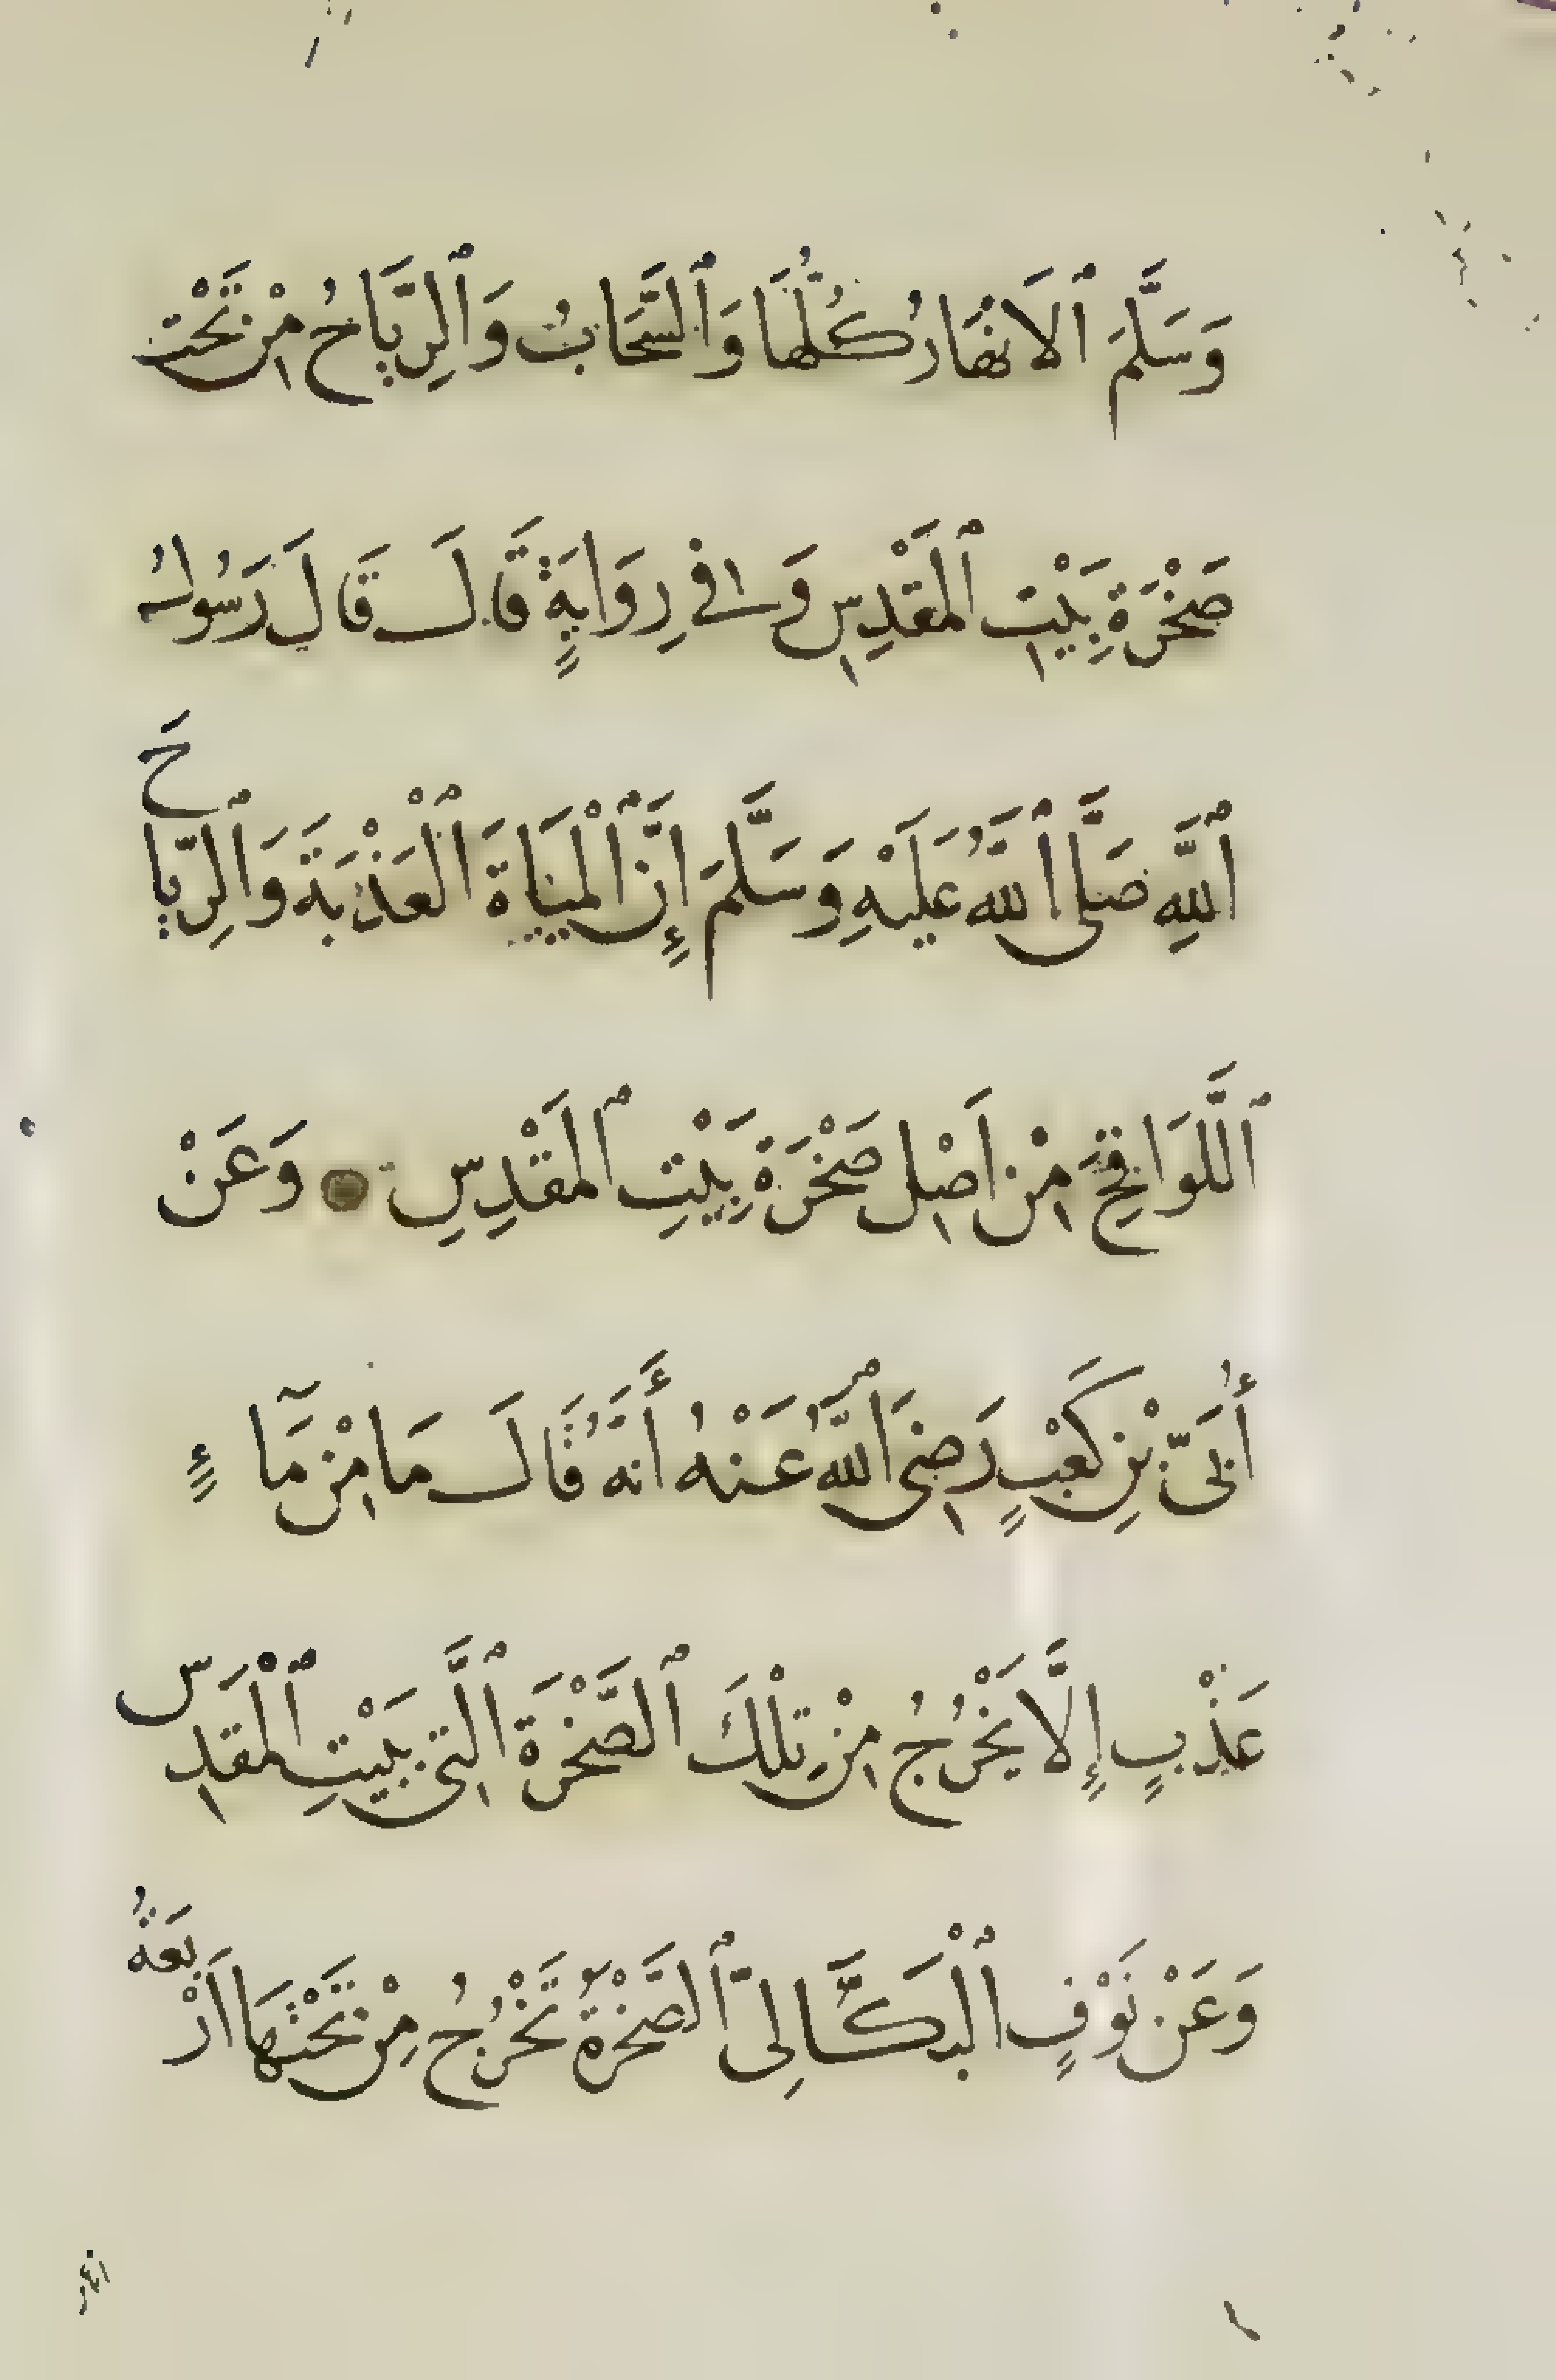 وَسَلَّمَ ٱلَانْهَارُ كُلُّهَا وَٱلسَّحَابُ وَٱلرِّيَاحُ مِنْ تَحْتِ
صَخْرَةِ بَيْتِ ٱلمَقْدِسِ وَفِي رِوَايَةٍ قَالَ قَالَ رَسُولُ
ٱللَّهِ صَلَّى ٱللَّهُ عَلَيْهِ وَسَلَّمَ إِنَّ ٱلْمِيَاةَ ٱلْعَذْبَةَ وَٱلرِّيَاحَ
ٱللَّوَاقِحَ مِنْ اَصْلِ صَخْرَةِ بَيْتِ ٱلمَقْدِسِ وَعَنْ
أُبَىِّ بْنِ كَعْبٍ رَضِىَ ٱللَّهُ عَنْهُ أَنَّهُ قَالَ مَا مِنْ مَآءٍ
عَذْبٍ إِلَّا يَخْرُجُ مِنْ تِلْكَ ٱلصَّخْرَةِ ٱلَّتِى بَيْتِ ٱلْمَقدِس
وَعَنْ نَوْفٍ ٱلْبَكَّالِىِّ ٱلصَّخْرَةُ تَخْرُجُ مِنْ تَحْتِهَا اَرْبَعَةُ